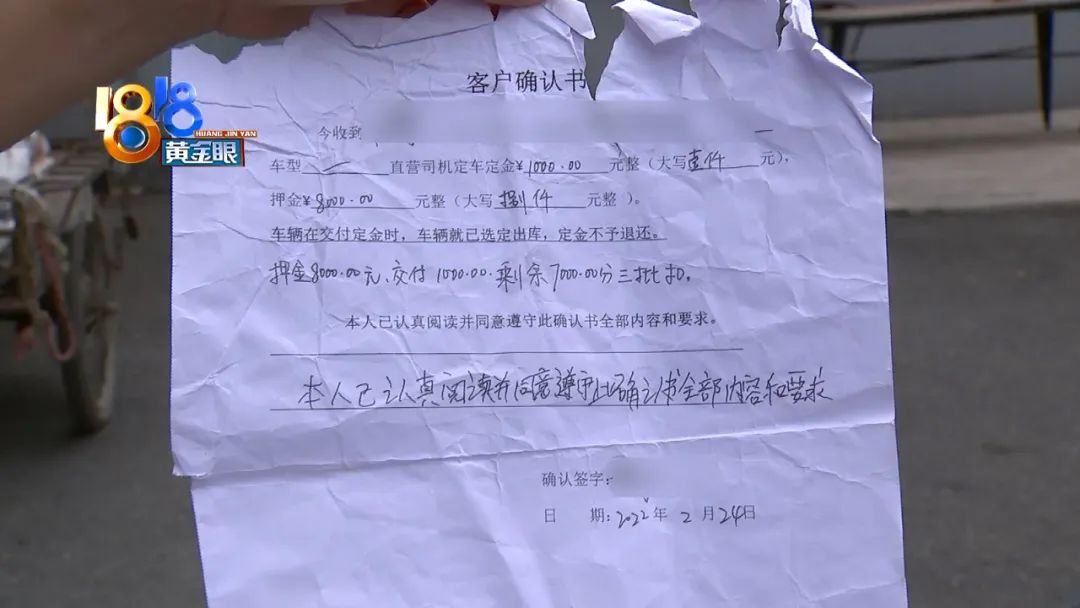 客户确认书
1818
HUANG JIN YAN
黄金眼
今收到
车型 直营司机定车定金¥1000.00 元整(大写壹仟 元),
押金¥8000.00 元整(大写捌仟 元整 )。
车辆在交付定金时，车辆就已选定出库，定金不予退还。
押金8000.00元、交付1000.00.剩余7000.00分三批扣.
本人已认真阅读并同意遵守此确认书全部内容和要求。
本人已认真阅读并同意遵守此确认书全部内容和要求
确认签字:
日 期:2022年 2 月 24日